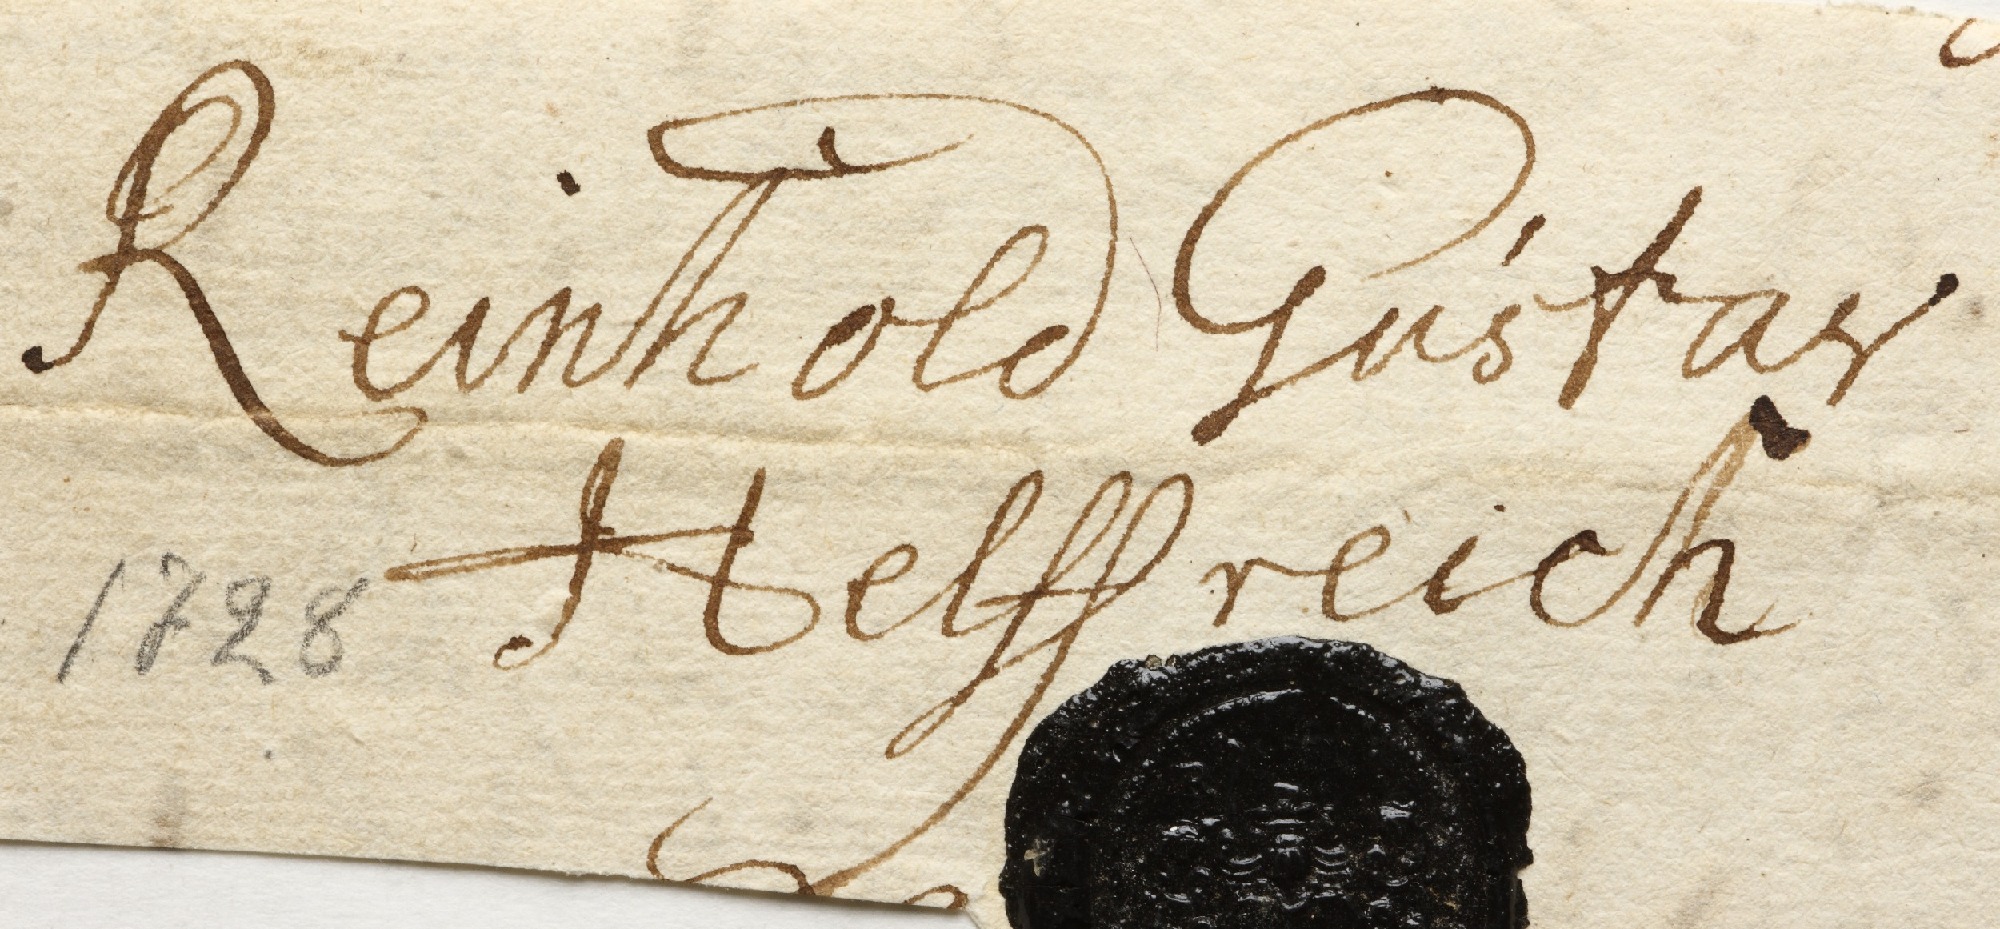 Reinhold Gustav
Helffreich
1728